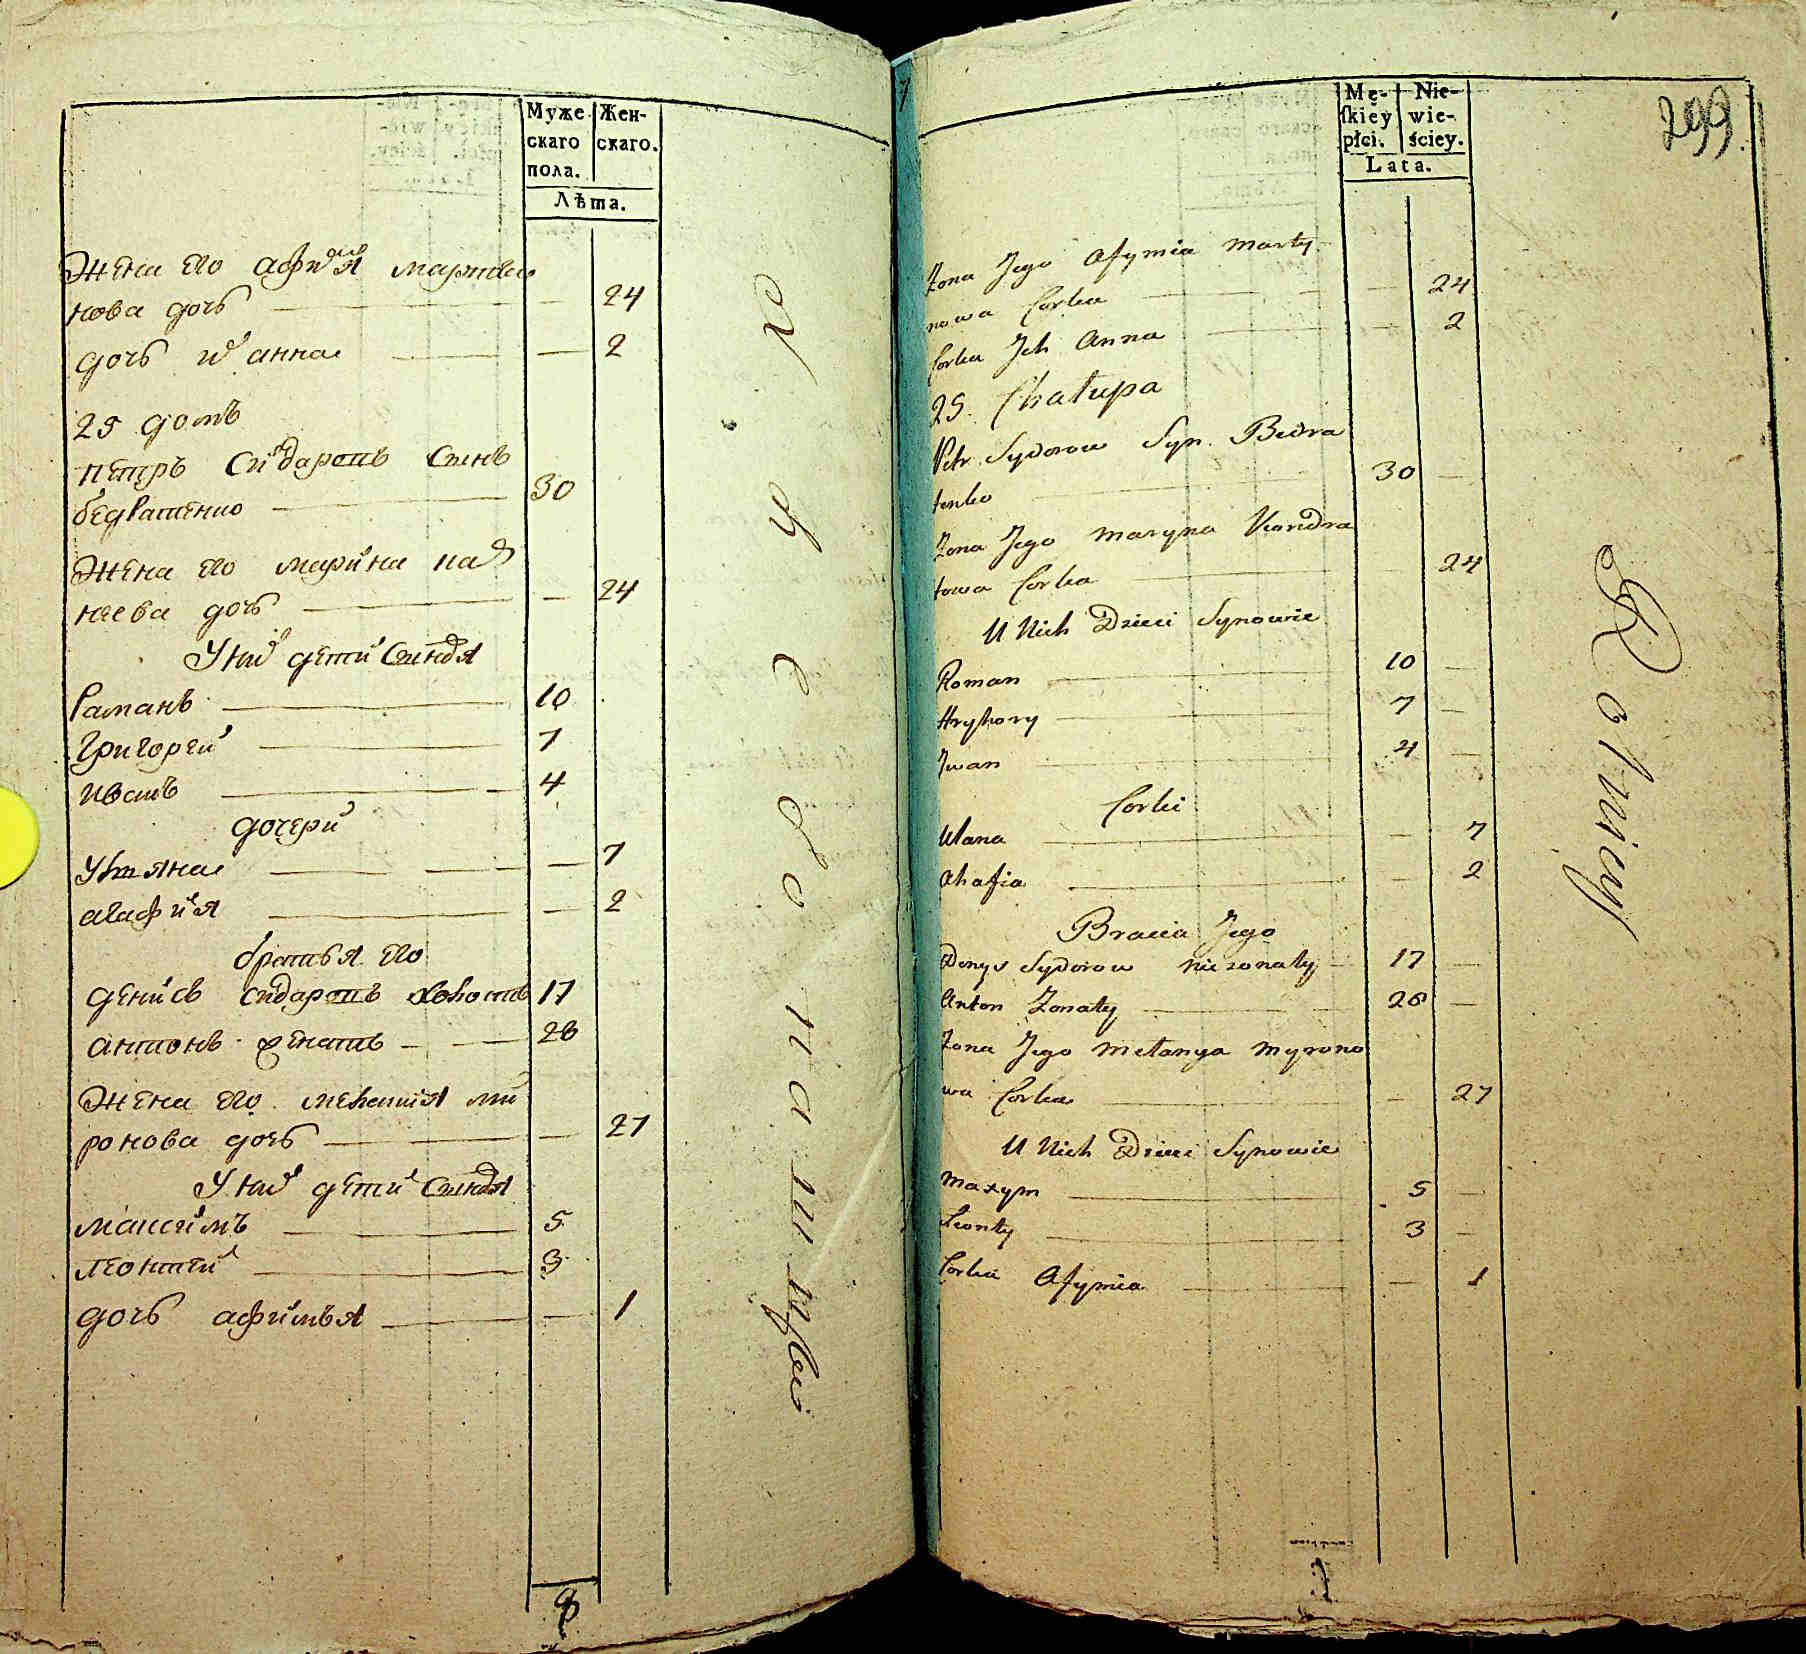 Муже
скаго
пола.
Жен-
скаго.
Лѣта.
жена его афимїя марты
нова дочь 24
дочь их анна 2
25 домъ
петръ сидаровъ сынъ
бедратенко 30
жена его марина кад
нова дочь 24
У них дети сыновя
Раманъ 10
Григорей 7
иванъ 4
дочери
Ульяна 7
агафия 2
братья его
денисъ сидаровъ холостъ 17
антонъ женатъ 28
жена его мелания ми
ронова дочь 27
У них дети сыновя
максимъ 5
леонтей 3
дочь афимья 1
8
299
Mę-
ſkiey
płci.
Nie-
wie-
ściey.
Lata.
Zona Jego Afymia Marty
nowa Corka 24
Corka Jch Anna 2
25. Chałupa
Petr Sydorow Syn Bedra
tenko 30
Zona Jego Maryna Kandra
towa Corka 24
U Nich Dzieci Synowie
Roman 10
Hryhory 7
Jwan 4
Corki
Ulana 7
Ahafia 2
Bracia Jego
Denys Sydorow nie zonaty 17
Anton Zonaty 28
Zona Jego Mełanya Myrono
wa Corka 27
U Nich Dzieci Synowie
Maxym 5
Leonty 3
Corka Afymia 1
Rolnicy